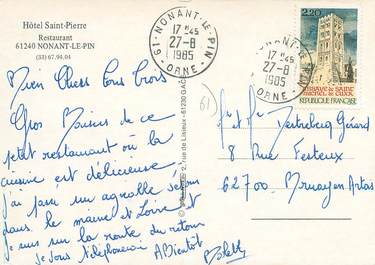 Hôtel Saint-Pierre
Restaurant
61240 NONANT-LE-PIN
(33) 67.94.04
Mien Chers tous trois
Gros Bisous de ce
petit restaurant où la
cuisine est délicieuse
j'ai passé un agréable séjour
dans le maine et Loire et
je suis sur la route du retour
je vous téléphonerai
A Bientôt
61-NONANT-LE-PIN
17 H 45
27-8
1985
ORNE
61-NONANT-LE-PIN
17 H 45
27-8
1985
ORNE
2,20
ABBAYE DE SAINT
MICHEL DE CUXA
REPUBLIQUE FRANÇAISE
61
rue de Lisieux - 61230 GACÉ
Mr et Me Gérard
8 Rue
62700 Bruay en Artois